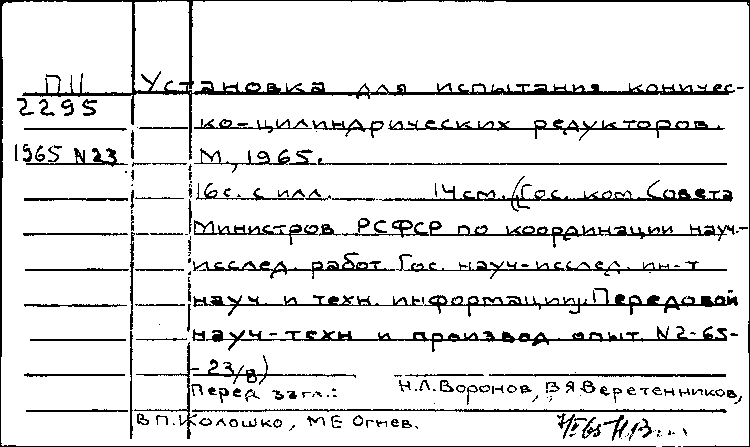 П11 Установка для испытания коничес-
2295
ко-цилиндрических редукторов.
1965 N23 М., 1965.
16с. с илл. 14см. (Гос. ком. Совета
Министров РСФСР по координации науч.-
исслед. работ. Гос. науч-исслед. ин-т
науч. и техн. информации. Передовой
науч-техн и производ. опыт. N2-65-
-23/8)
Перед загл.: Н.Л.Воронов, В.Я.Веретенников,
В.П.Колошко, М.Е Огнев.